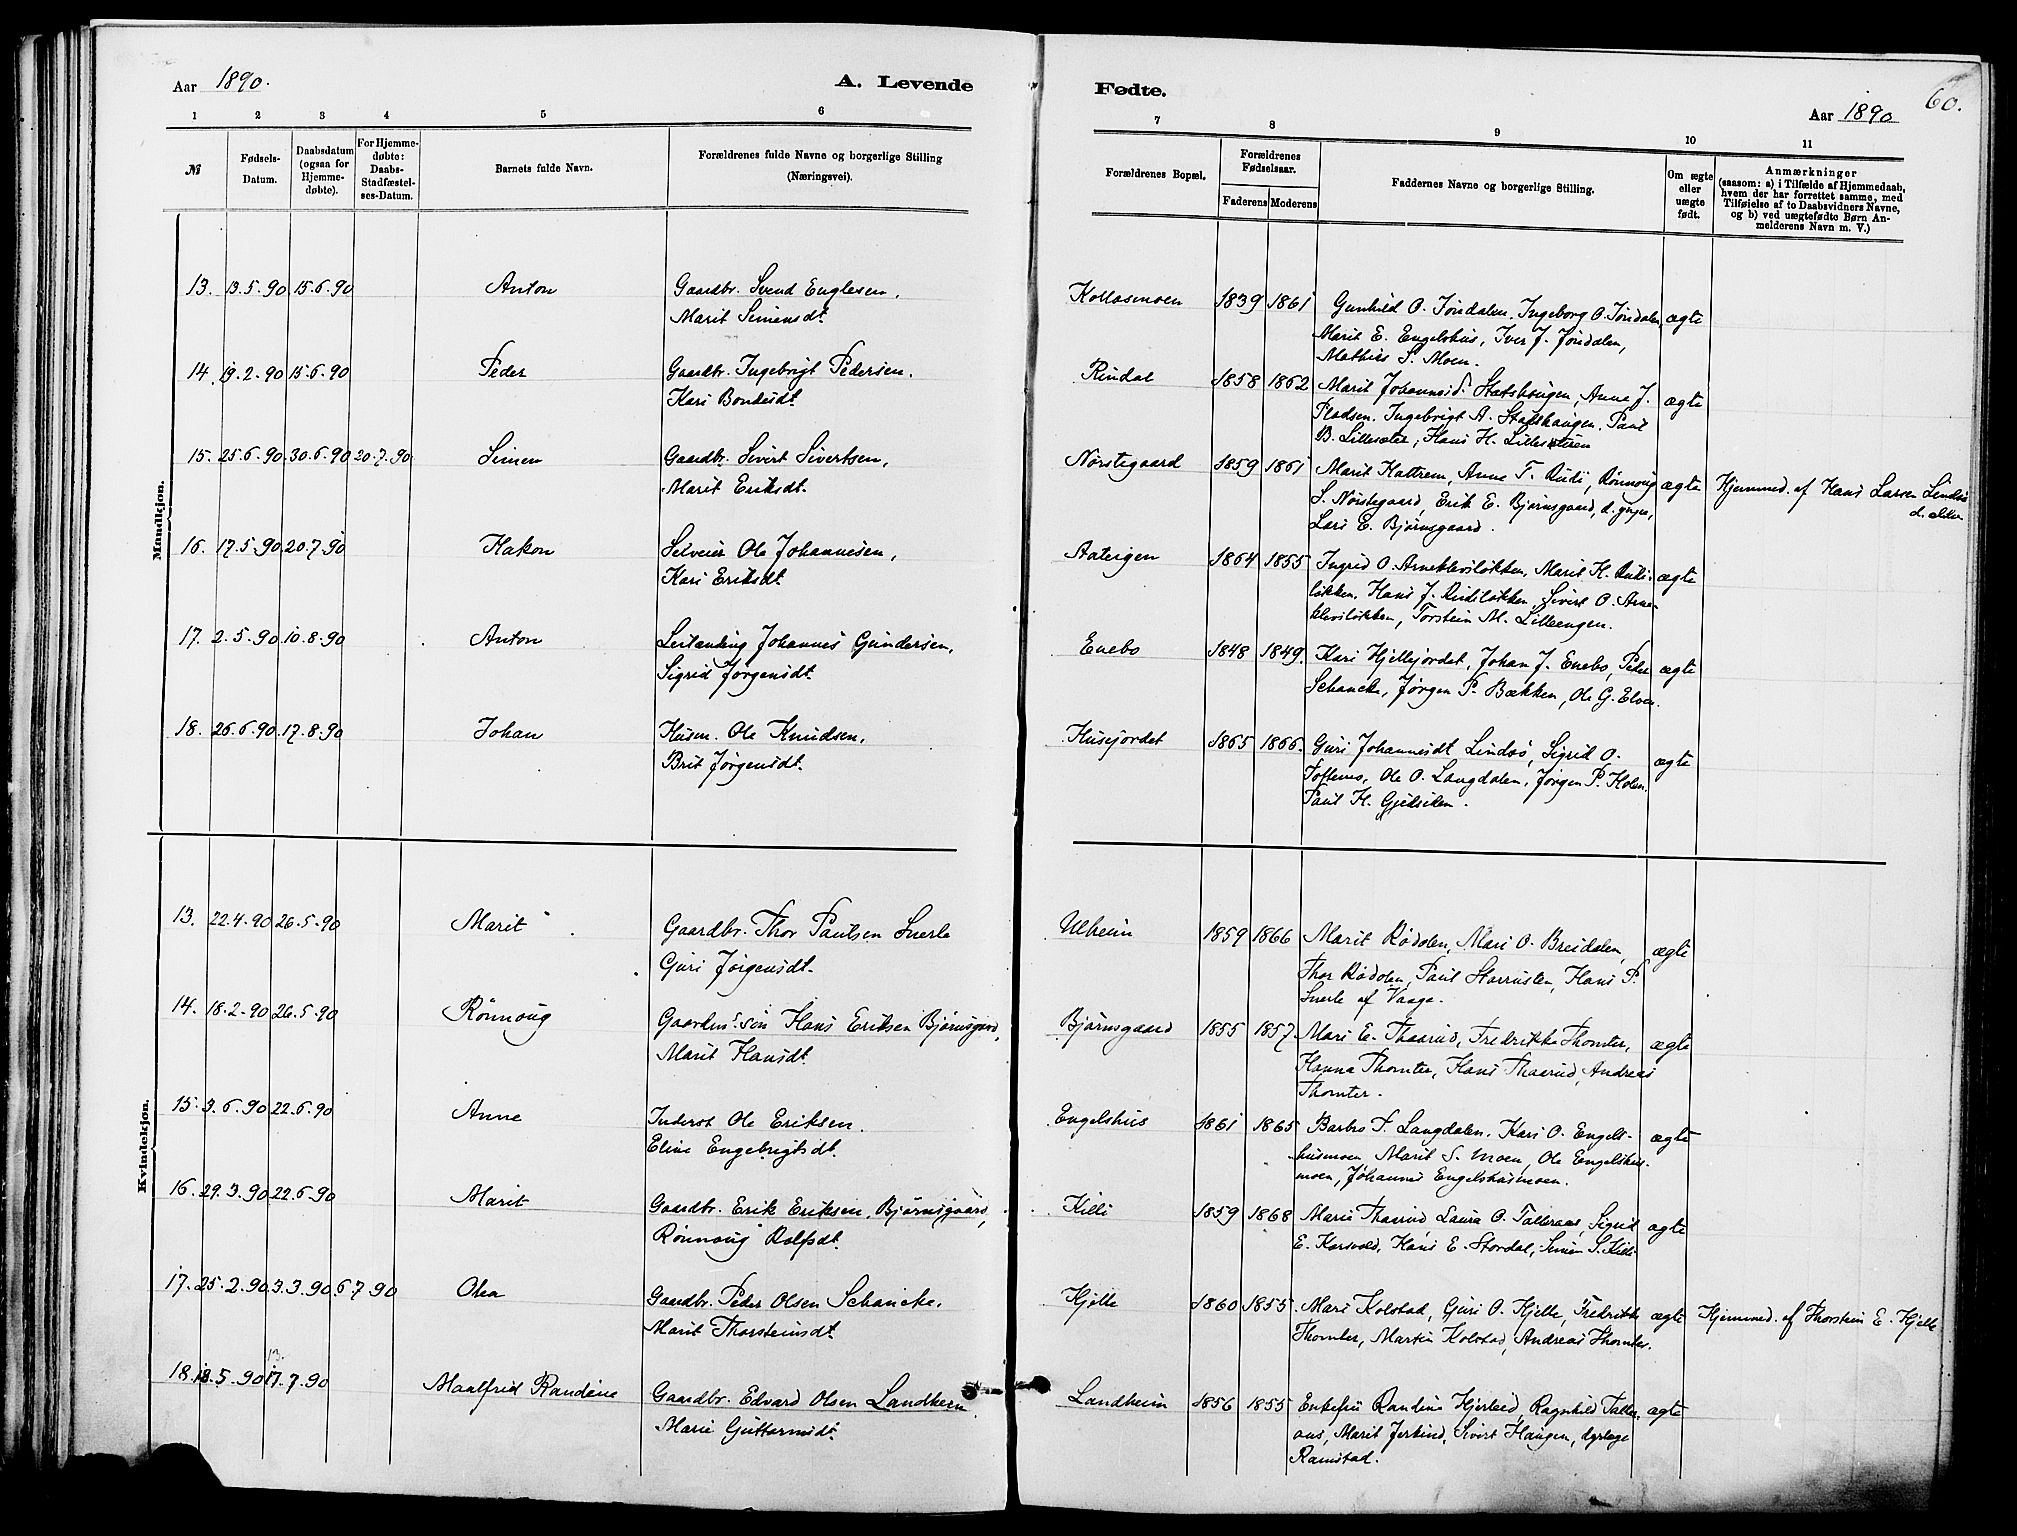 Aar 1890.
A. Levende
1 2 3 4 5 6
№
Fødsels-Datum.
Daabsdatum (ogsaa for Hjemme-døbte).
For Hjemme-døbte: Daabs-Stadfæstel-ses-Datum.
Barnets fulde Navn.
Forældrenes fulde Navne og borgerlige Stilling
(Næringsvei).
Mandkjøn.
13. 13.5.90 15.6.90 Anton Gaardbr. Svend Englesen,
Marit Simensdt.
14. 19.2.90 15.6.90 Peder Gaardbr. Ingebrigt Pedersen.
Kari Bondesdt.
15. 25.6.90. 30.6.90 20.7.90 Simen Gaardbr. Sivert Sivertsen,
Marit Eriksdt.
16. 17.5.90 20.7.90 Hakon Selveier Ole Johannesen,
Kari Eriksdt.
17. 2.5.90 10.8.90 Anton Leilending Johannes Gundersen,
Sigrid Jørgensdt.
18. 26.6.90. 17.8.90 Johan Husm. Ole Knudsen,
Brit Jørgensdt.
Kvindekjøn.
13. 22.4.90 26.5.90 Marit Gaardbr. Thor Paulsen Snerle
Guri Jørgensdt.
14. 18.2.90 26.5.90 Rønnoug Gaardms. søn Hans Eriksen Bjørnsgaard,
Marit Hansdt.
15. 3.6.90 22.6.90 Anne Inderst Ole Eriksen.
Eline Engebrigtsdt.
16. 29.3.90 22.6.90 Marit Gaardbr. Erik Eriksen Bjørnsgaard,
Rønnoug Rolfsdt.
17. 25.2.90 3.3.90. 6.7.90 Olea Gaardbr. Peder Olsen Schancke.
Marit Thorsteinsdt.
13.
18. 18.5.90 17.7.90 Maalfrid Randine Gaardbr. Edvard Olsen Landheim
Marie Guttormsdt.
Fødte.
60.
Aar 1890
7 8 9 10 11
Forældrenes Bopæl.
Forældrenes Fødselsaar.
Faderens Moderens
Faddernes Navne og borgerlige Stilling.
Om ægte eller uægte født.
Anmærkninger
(saasom: a) i Tilfælde af Hjemmedaab,
hvem der har forrettet samme, med
Tilføielse af to Daabsvidners Navne,
og b) ved uægtefødte Børn An-
melderens Navn m. V.)
Kollasmoen 1839 1861 Gunhild O. Jøndalen, Ingeborg O. Jøndalen, ægte
Marit E. Engelshus, Iver J. Jøndalen,
Mathias S. Moen.
Rindal 1858 1862 Marit Johannesd. Statshaugen, Anne J. ægte
Pladsen. Ingebrigt A. Statshaugen. Paul
B. Lillesæter, Hans H. Lillesæteren
Nørstegaard 1859 1861 Marit Kattrem, Anne T. Rudi, Rønnoug ægte Hjemmed. af Hans Larsen Lindsø
S. Nørstegaard, Erik E. Bjørnsgaard, d. yngre, d. ældre
Lars E. Bjørnsgaard.
Aateigen 1864 1855 Ingrid O. Arnekleviløkken, Marit H. Rudi- ægte
løkken. Hans J. Rudiløkken, Sivert O. Arne-
kleviløkken, Torstein M. Lilleengen.
Enebo 1848 1849. Kari Hjellejordet, Johan J. Enebo, Peder ægte
Schancke, Jørgen P. Bækken, Ole G. Elven.
Husejordet 1865 1866. Guri Johannesdt Lindsø, Sigrid O. ægte
Toftemo, Ole O. Langdalen, Jørgen P. Kolen.
Paul H. Gjetsiden.
Ulheim 1859 1866 Marit Rødolen, Mari O. Breidalen, ægte
Thor Rødolen, Paul Storrusten, Hans P.
Snerle af Vaage.
Bjørnsgaard 1855 1857. Mari E. Thaarud, Fredrikke Thomter, ægte
Hanna Thomter, Hans Thaarud, Andreas
Thomter.
Engelshus 1861 1865 Barbro S. Langdalen, Kari O. Engels- ægte
husmoen Marit S. Moen, Ole Engelshus-
moen, Johannes Engelshusmoen.
Killi 1859 1868 Marie Thaarud Laura O. Talleraas, Sigrid ægte
E. Korsvold, Hans E. Stordal, Simen S. Killi
Hjelle 1860 1855. Mari Kolstad, Guri O. Hjelle, Fredrikke ægte Hjemmed. af Thorstein E. Hjelle
Thomter, Martin Kolstad, Andreas Thomter.
Landheim 1856 1855 Enkefru Randine Hjerleid, Ragnhild Taller- ægte
aas, Marit Jerkind, Sivert Haugen, dyrlæge
Ramstad.